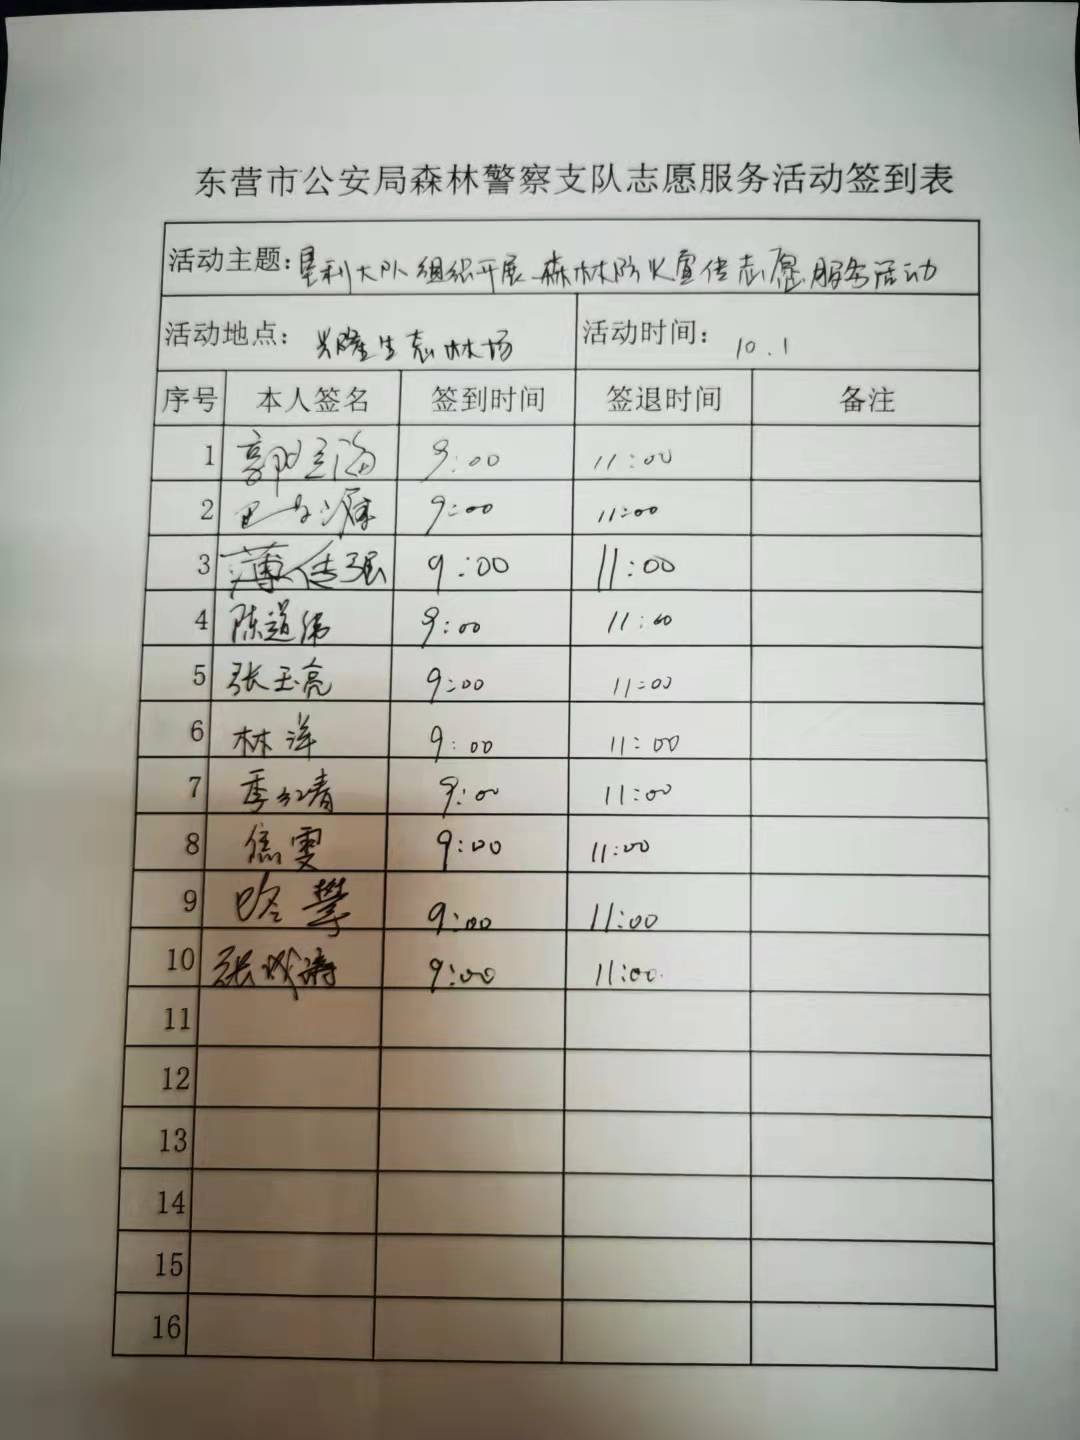 东营市公安局森林警察支队志愿服务活动签到表
活动主题：垦利大队组织开展森林防火宣传志愿服务活动
活动地点：兴隆生态林场 活动时间：10.1
序号 本人签名 签到时间 签退时间 备注
1 郭 9:00 11:00
2 9:00 11:00
3 薄传强 9:00 11:00
4 陈道伟 9:00 11:00
5 张玉亮 9:00 11:00
6 林洋 9:00 11:00
7 季红青 9:00 11:00
8 焦雯 9:00 11:00
9 9:00 11:00
10 张 9:00 11:00
11
12
13
14
15
16